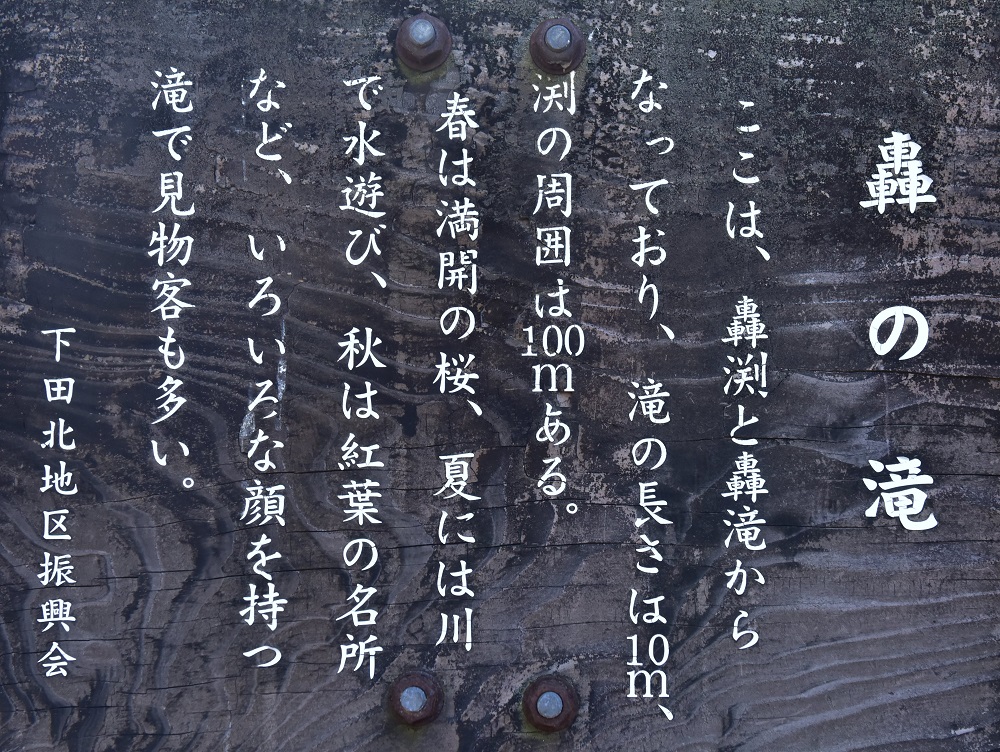 轟の滝
ここは、轟渕と轟滝から
なっており、滝の長さは10m、
渕の周囲は100mある。
春は満開の桜、夏には川
で水遊び、秋は紅葉の名所
など、いろいろな顔を持つ
滝で見物客も多い。
下田北地区振興会